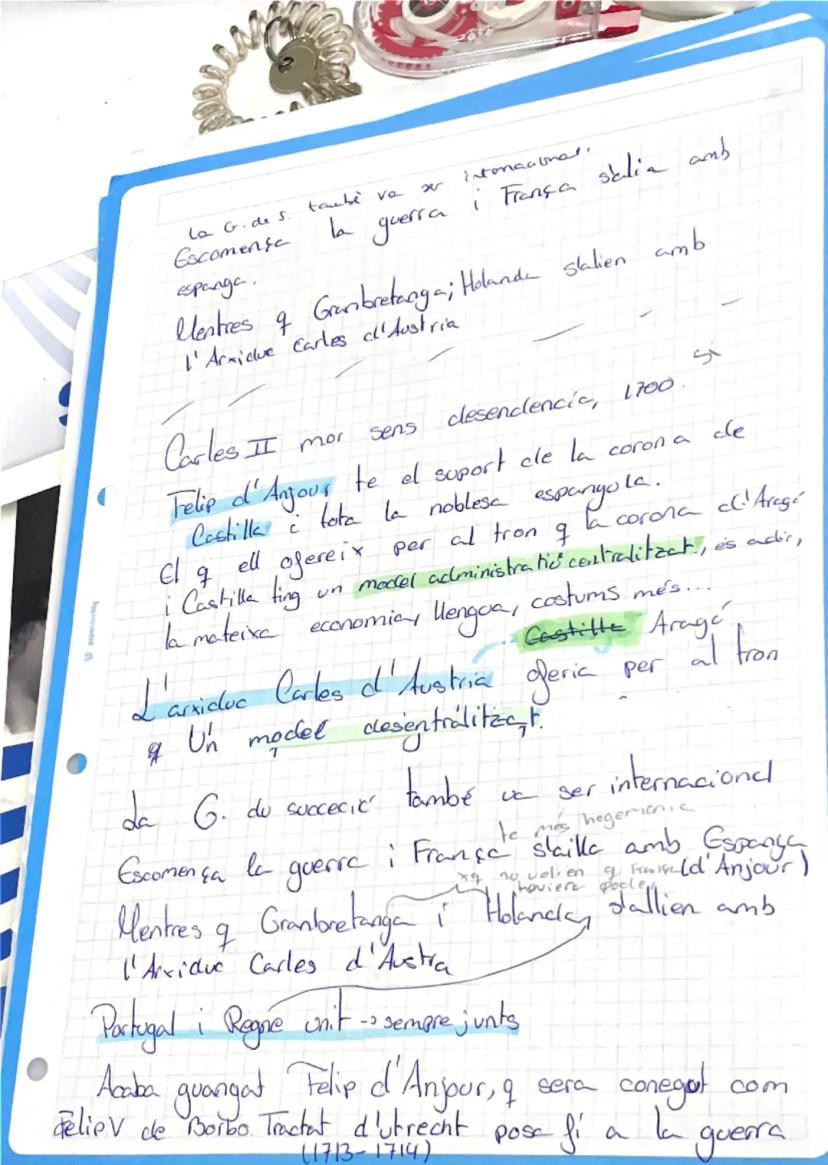 La G. de S. també va ser internacional.
Escomença la guerra i França s'alia amb
espanga.
Mentres q Granbretanga; Holanda s'alien amb
l'Arxiduc Carles d'Austria
Carles II mor sens desendencia, 1700. Si
Felip d'Anjour te el suport de la corona de
Castilla i tota la noblesa espanyola.
El q ell ofereix per al tron q la corona d'Aragó
i Castilla ting un model administratió centralitzat, és adir,
la mateixa economia, llengua, costums més...
Castilla Aragó
L'arxiduc Carles d'Austria oferia per al tron
q Un model desentralitzat.
La G. de succeció també va ser internacional
te més hegemonia
Escomença la guerra i França s'ailla amb Espanga
xq no volien q França (d'Anjour)
haviera poder
Mentres q Granbretanga i Holanda, s'allien amb
l'Arxiduc Carles d'Austra
Portugal i Regne unit -> sempre junts
Acaba guangat Felip d'Anjour, q sera conegut com
Felip V de Borbo. Tractat d'utrecht posa fi a la guerra
(1713-1714)